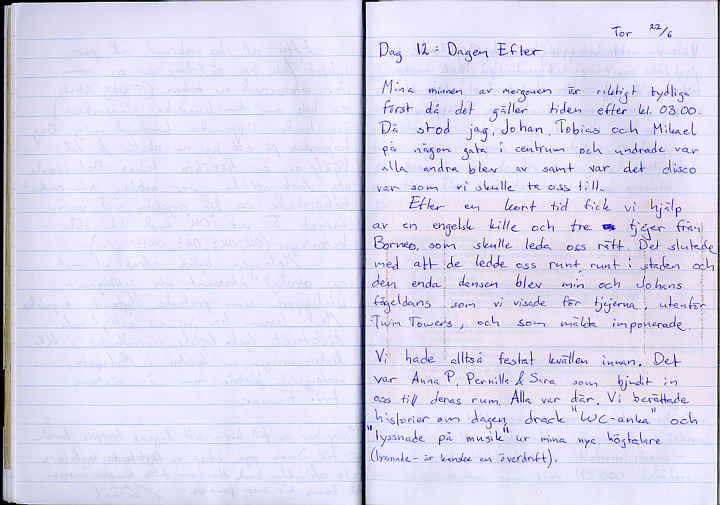 Tor 22/6
Dag 12 : Dagen Efter
Mina minnen av morgonen är riktigt tydliga
först då det gäller tiden efter kl. 03.00.
Då stod jag, Johan, Tobias och Mikael
på någon gata i centrum och undrade var
alla andra blev av samt var det disco
var som vi skulle ta oss till.
Efter en kort tid fick vi hjälp
av en engelsk kille och tre tjejer från
Borneo, som skulle leda oss rätt. Det slutade
med att de ledde oss runt, runt i staden och
den enda dansen blev min och Johans
fågeldans som vi visade för tjejerna, utanför
Twin Towers, och som mäkta imponerade.
Vi hade alltså festat kvällen innan. Det
var Anna P, Pernilla & Sara som bjudit in
oss till deras rum. Alla var där. Vi berättade
historier om dagen, drack "WC-anka" och
"lyssnade på musik" ur mina nya högtalare
(lyssnade - är kanske en överdrift).